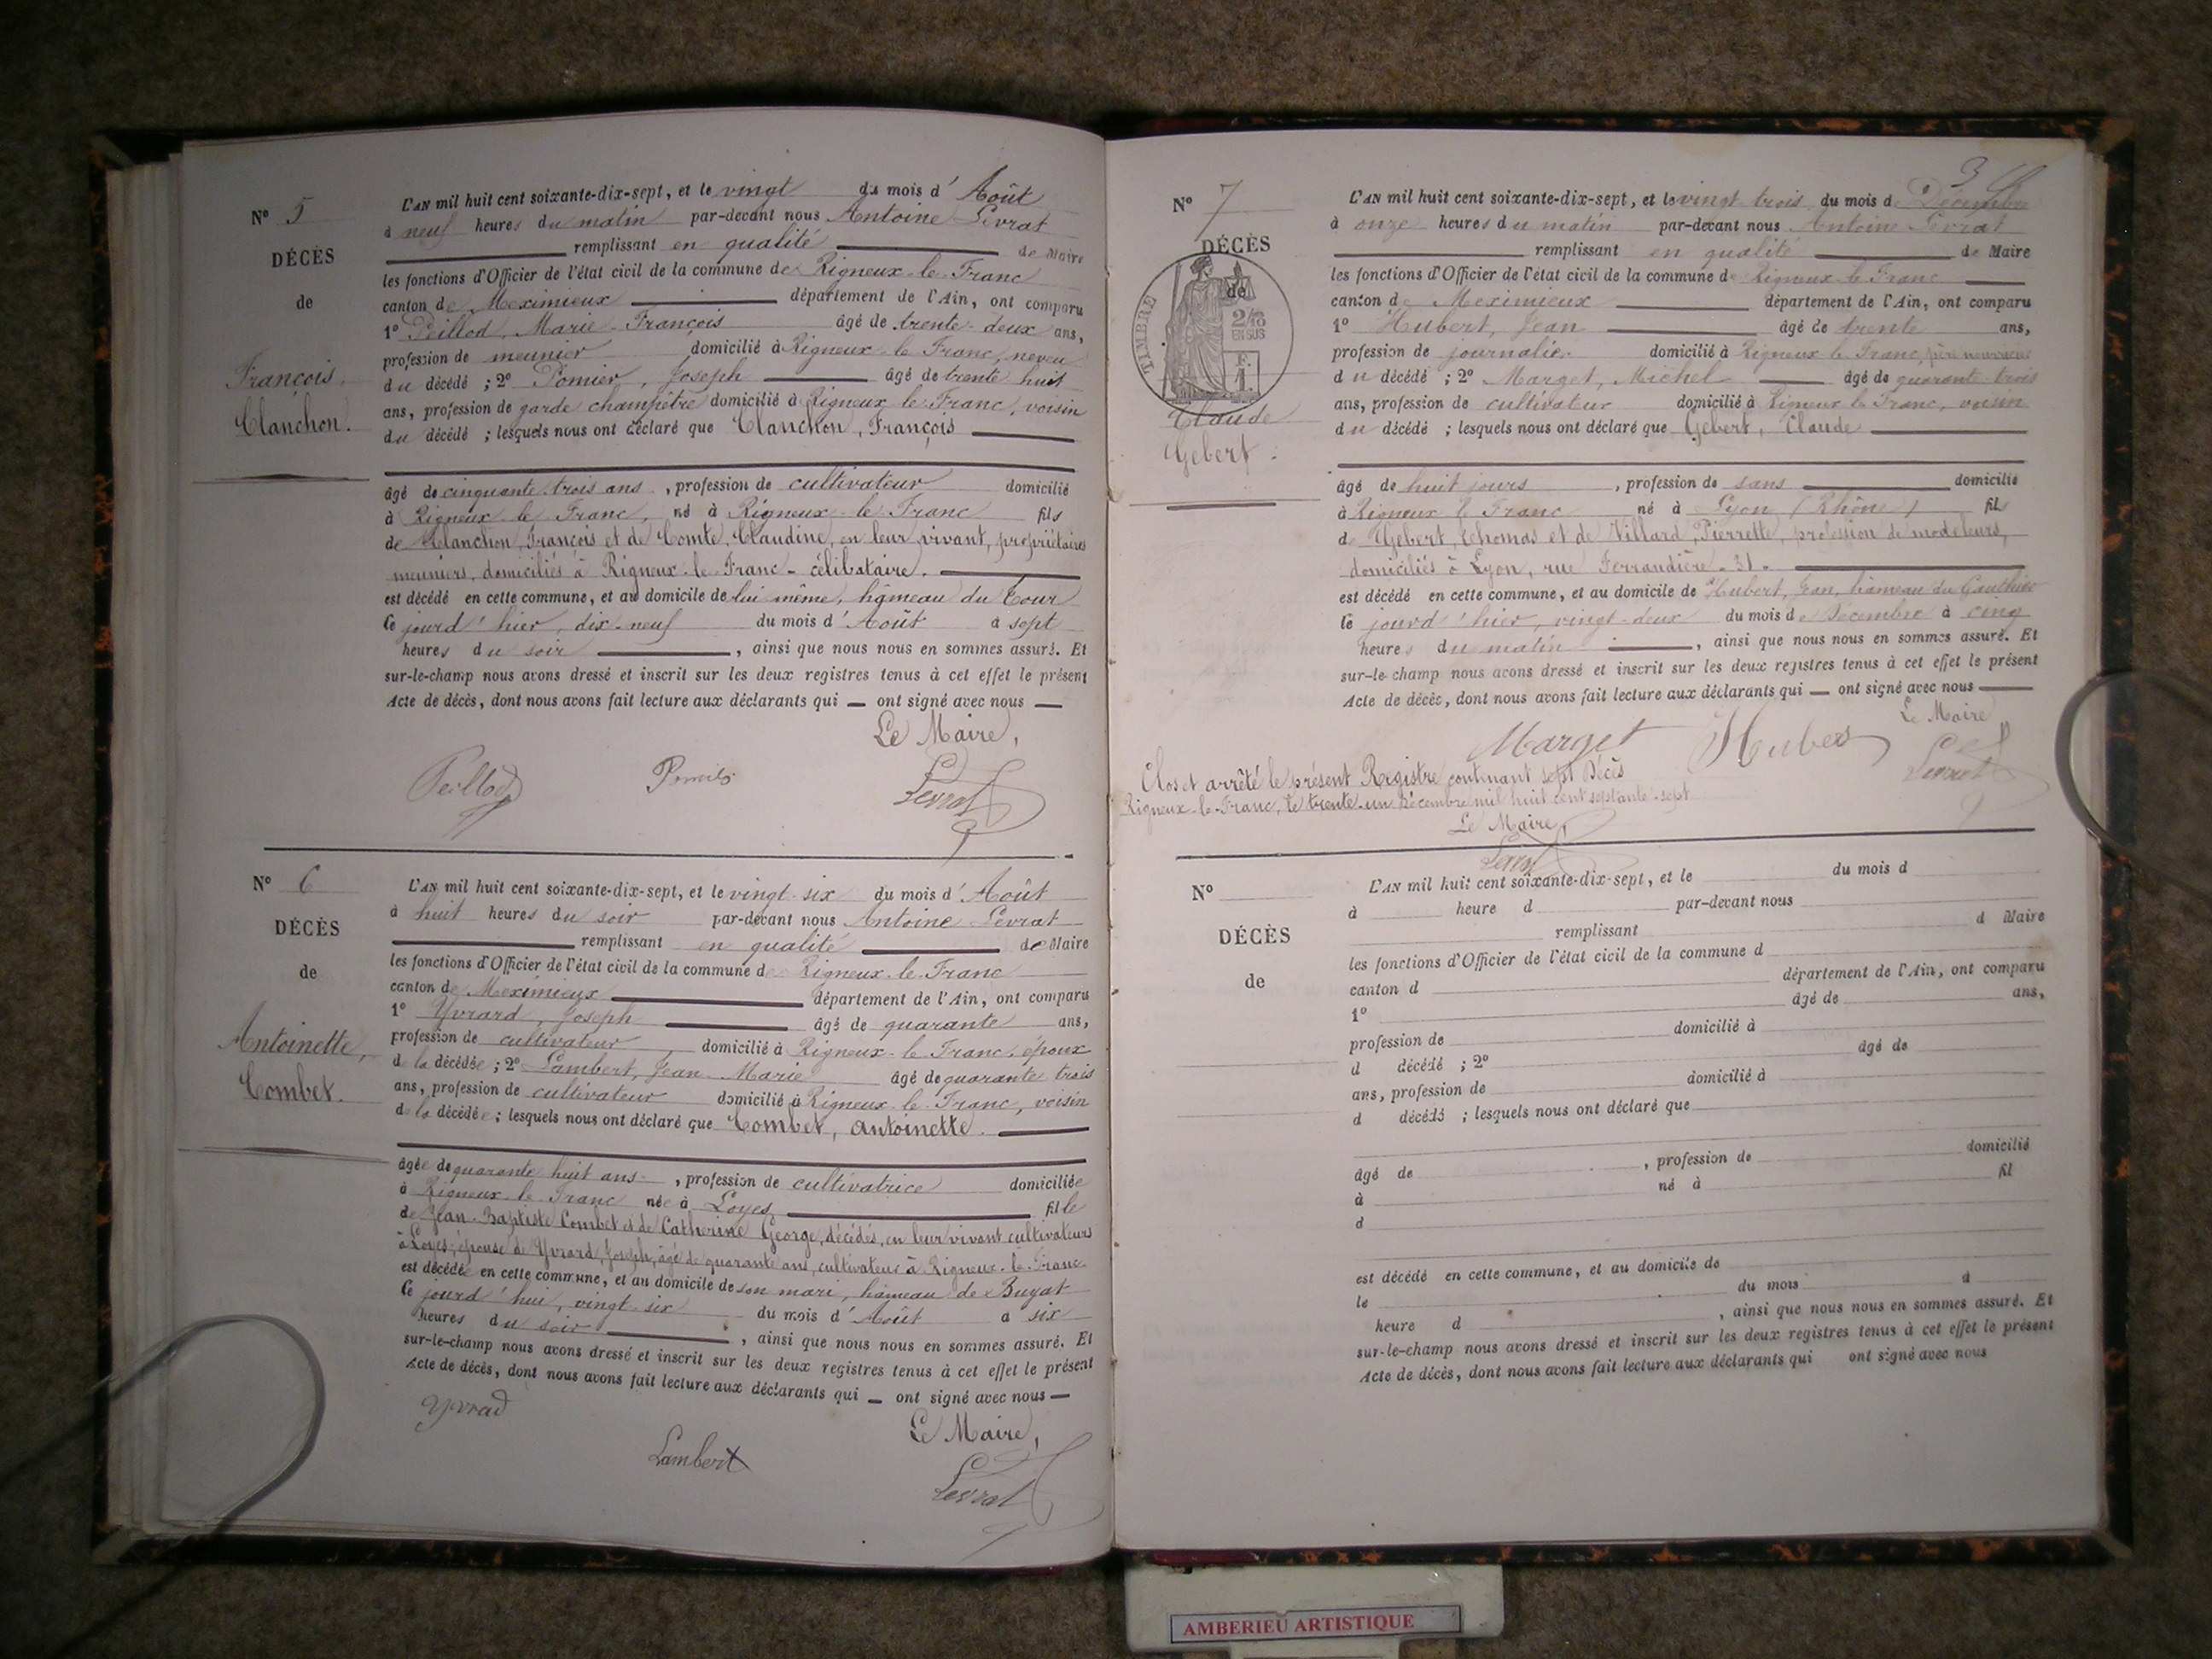 Nº 5
DÉCÈS
de
François
Clanchon.
L'AN mil huit cent soixante-dix-sept, et le vingt du mois d'Août
à neuf heures du matin par-devant nous Antoine Levrat
remplissant en qualité de Maire
les fonctions d'Officier de l'état civil de la commune de Rigneux-le-Franc
canton de Meximieux département de l'Ain, ont comparu
1º Peillod, Marie-François âgé de trente-deux ans,
profession de meunier domicilié à Rigneux-le-Franc, neveu
du décédé ; 2º Pomier, Joseph âgé de trente huit
ans, profession de garde champêtre domicilié à Rigneux le Franc, voisin
du décédé ; lesquels nous ont déclaré que Clanchon, François
âgé de cinquante trois ans, profession de cultivateur domicilié
à Rigneux le Franc, né à Rigneux-le-Franc fils
de Clanchon, François et de Comte, Claudine, en leur vivant, propriétaires
meuniers, domiciliés à Rigneux-le-Franc - célibataire.
est décédé en cette commune, et au domicile de lui même, hâmeau du Tour
le jourd'hier, dix-neuf du mois d'Août à sept
heures du soir, ainsi que nous nous en sommes assuré. Et
sur-le-champ nous avons dressé et inscrit sur les deux registres tenus à cet effet le présent
Acte de décès, dont nous avons fait lecture aux déclarants qui — ont signé avec nous —
Le Maire,
Peillod Pomier Levrat
Nº 6
DÉCÈS
de
Antoinette,
Combet.
L'AN mil huit cent soixante-dix-sept, et le vingt-six du mois d'Août
à huit heures du soir par-devant nous Antoine Levrat
remplissant en qualité de Maire
les fonctions d'Officier de l'état civil de la commune de Rigneux-le-Franc
canton de Meximieux département de l'Ain, ont comparu
1º Yvrard, Joseph âgé de quarante ans,
profession de cultivateur domicilié à Rigneux-le-Franc, époux
de la décédée ; 2º Lambert, Jean-Marie âgé de quarante trois
ans, profession de cultivateur domicilié à Rigneux-le-Franc, voisin
de la décédée ; lesquels nous ont déclaré que Combet, Antoinette.
âgée de quarante huit ans, profession de cultivatrice domiciliée
à Rigneux-le-Franc née à Loyes fille
de Jean-Baptiste Combet et de Catherine George, décédés, en leur vivant cultivateurs
à Loyes, épouse de Yvrard, Joseph, âgé de quarante ans, cultivateur à Rigneux-le-Franc
est décédée en cette commune, et au domicile de son mari, hâmeau de Buyat
le jourd'hui, vingt-six du mois d'Août à six
heures du soir, ainsi que nous nous en sommes assuré. Et
sur-le-champ nous avons dressé et inscrit sur les deux registres tenus à cet effet le présent
Acte de décès, dont nous avons fait lecture aux déclarants qui — ont signé avec nous —
Yvrad
Le Maire,
Lambert
Levrat
3
Nº 7
DÉCÈS
de
TIMBRE
2/10
EN SUS
F.
1.
Claude
Gebert.
L'AN mil huit cent soixante-dix-sept, et le vingt trois du mois de Décembre
à onze heures du matin par-devant nous Antoine Levrat
remplissant en qualité de Maire
les fonctions d'Officier de l'état civil de la commune de Rigneux-le-Franc
canton de Meximieux département de l'Ain, ont comparu
1º Hubert, Jean âgé de trente ans,
profession de journalier domicilié à Rigneux le Franc, père nourricier
du décédé ; 2º Marget, Michel âgé de quarante-trois
ans, profession de cultivateur domicilié à Rigneux le Franc, voisin
du décédé ; lesquels nous ont déclaré que Gebert, Claude
âgé de huit jours, profession de sans domicilié
à Rigneux le Franc né à Lyon (Rhône) fils
de Gebert, Thomas et de Villard, Pierrette, profession de modeleurs,
domiciliés à Lyon, rue Ferrandière-31-
est décédé en cette commune, et au domicile de Hubert, Jean, hâmeau du Gauthier
le jourd'hier, vingt-deux du mois de Décembre à cinq
heures du matin, ainsi que nous nous en sommes assuré. Et
sur-le-champ nous avons dressé et inscrit sur les deux registres tenus à cet effet le présent
Acte de décès, dont nous avons fait lecture aux déclarants qui — ont signé avec nous —
Le Maire
Marget Hubert Levrat
Clos et arrêté le présent Registre contenant sept Décès
Rigneux-le-Franc, le trente-un Décembre mil huit cent septante-sept
Le Maire,
Levrat
Nº
DÉCÈS
de
L'AN mil huit cent soixante-dix-sept, et le du mois d
à heure d par-devant nous
remplissant d Maire
les fonctions d'Officier de l'état civil de la commune d
canton d département de l'Ain, ont comparu
1º âgé de ans,
profession de domicilié à
d décédé ; 2º âgé de
ans, profession de domicilié à
d décédé ; lesquels nous ont déclaré que
âgé de , profession de domicilié
à né à fil
d
est décédé en cette commune, et au domicile de
le du mois à
heure d , ainsi que nous nous en sommes assuré. Et
sur-le-champ nous avons dressé et inscrit sur les deux registres tenus à cet effet le présent
Acte de décès, dont nous avons fait lecture aux déclarants qui ont signé avec nous
AMBERIEU ARTISTIQUE